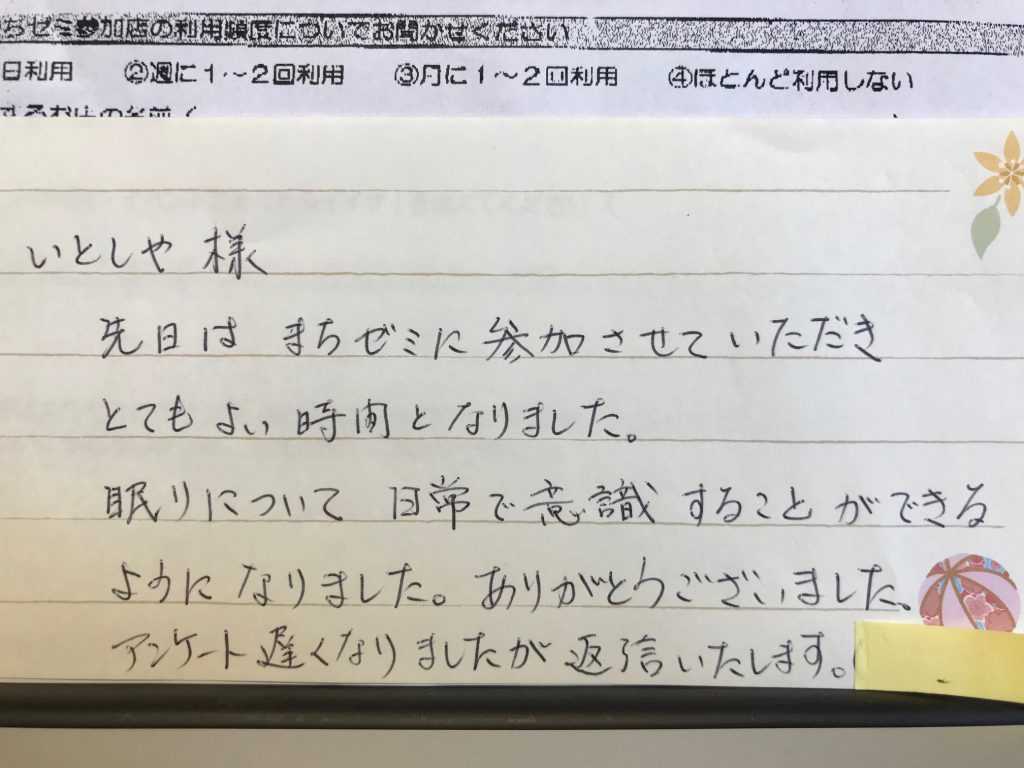 ちゼミ参加店の利用頻度についてお聞かせください
日利用 ②週に1～2回利用 ③月に1～2回利用 ④ほとんど利用しない
いとしや 様
先日は まちゼミに 参加させて いただき
とても よい 時間と なりました。
眠りについて 日常で 意識 することが できる
ように なりました。ありがとうございました。
アンケート 遅くなりましたが 返信いたします。